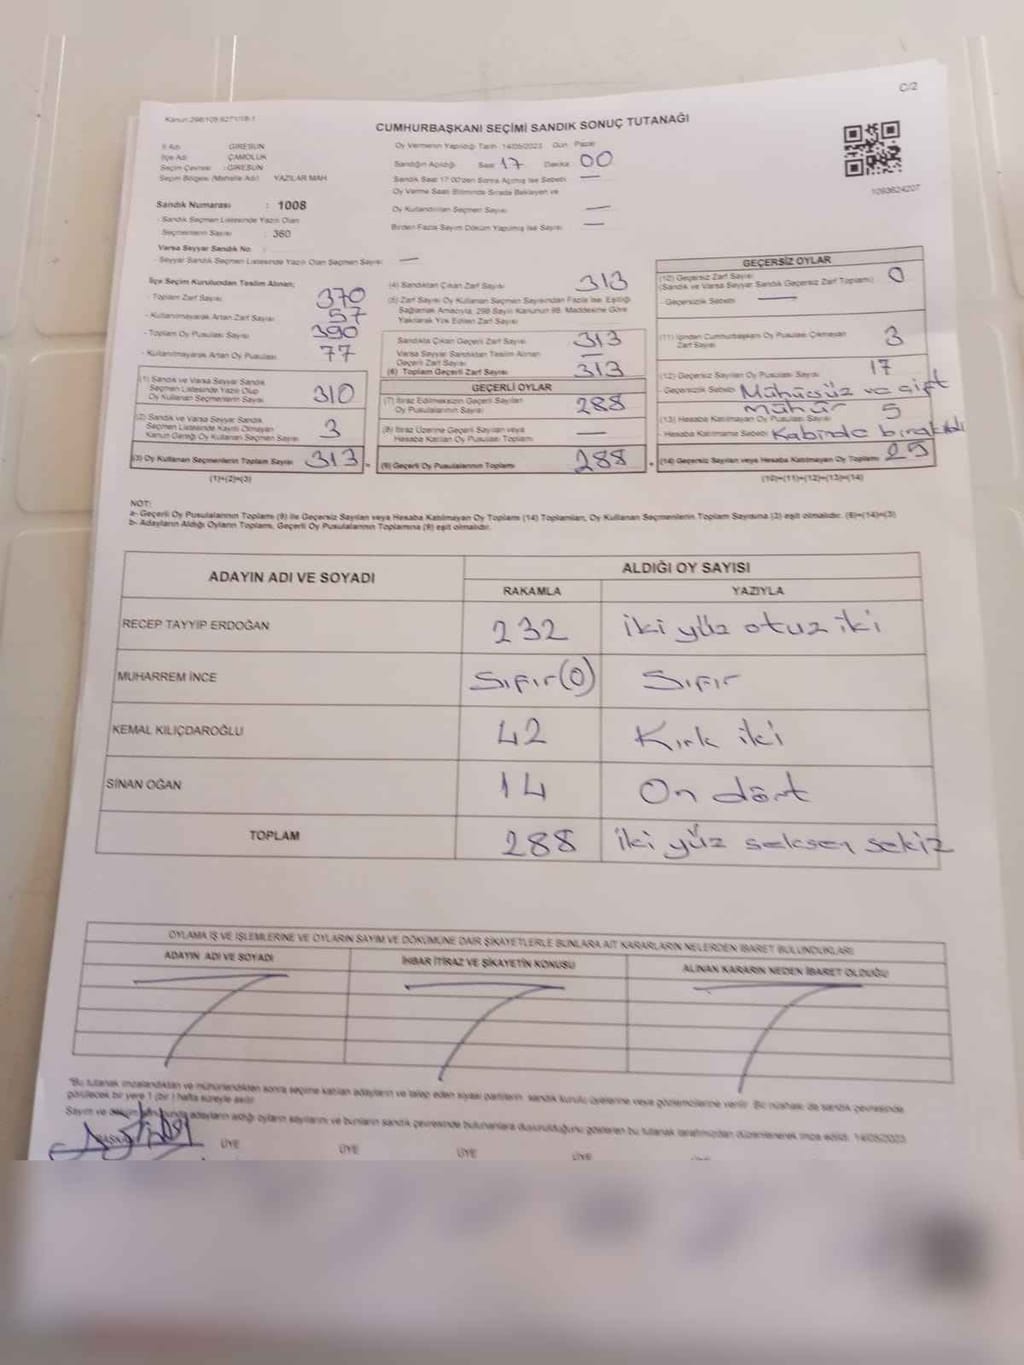 C/2
CUMHURBAŞKANI SEÇİMİ SANDIK SONUÇ TUTANAĞI
İl Adı GİRESUN
İlçe Adı ÇAMOLUK
Seçim Çevresi GİRESUN
Seçim Bölgesi (Mahalle Adı) YAZILAR MAH
Oy Vermenin Yapıldığı Tarih 14/05/2023 Gün Pazar
Sandığın Açıldığı Saat 17 Dakika 00
Sandık Saat 17.00'den Sonra Açılmış İse Sebebi —
Oy Verme Saati Bitiminde Sırada Bekleyen ve
Oy Kullandırılan Seçmen Sayısı —
Birden Fazla Sayım Döküm Yapılmış İse Sayısı —
1093624207
Sandık Numarası : 1008
- Sandık Seçmen Listesinde Yazılı Olan
Seçmenlerin Sayısı : 360
Varsa Seyyar Sandık No
- Seyyar Sandık Seçmen Listesinde Yazılı Olan Seçmen Sayısı —
İlçe Seçim Kurulundan Teslim Alınan;
- Toplam Zarf Sayısı 370
- Kullanılmayarak Artan Zarf Sayısı 57
- Toplam Oy Pusulası Sayısı 390
- Kullanılmayarak Artan Oy Pusulası 77
(1) Sandık ve Varsa Seyyar Sandık
Seçmen Listesinde Yazılı Olup
Oy Kullanan Seçmenlerin Sayısı 310
(2) Sandık ve Varsa Seyyar Sandık
Seçmen Listesinde Kayıtlı Olmayan
Kanun Gereği Oy Kullanan Seçmen Sayısı 3
(3) Oy Kullanan Seçmenlerin Toplam Sayısı 313
(1)+(2)=(3)
(4) Sandıktan Çıkan Zarf Sayısı 313
(5) Zarf Sayısı Oy Kullanan Seçmen Sayısından Fazla İse, Eşitliği
Sağlamak Amacıyla, 298 Sayılı Kanunun 98. Maddesine Göre
Yakılarak Yok Edilen Zarf Sayısı
Sandıkta Çıkan Geçerli Zarf Sayısı 313
Varsa Seyyar Sandıktan Teslim Alınan
Geçerli Zarf Sayısı —
(6) Toplam Geçerli Zarf Sayısı 313
GEÇERLİ OYLAR
(7) İtiraz Edilmeksizin Geçerli Sayılan
Oy Pusulalarının Sayısı 288
(8) İtiraz Üzerine Geçerli Sayılan veya
Hesaba Katılan Oy Pusulası Toplamı —
(9) Geçerli Oy Pusulalarının Toplamı 288
GEÇERSİZ OYLAR
(10) Geçersiz Zarf Sayısı 0
(Sandık ve Varsa Seyyar Sandık Geçersiz Zarf Toplamı)
- Geçersizlik Sebebi —
(11) İçinden Cumhurbaşkanı Oy Pusulası Çıkmayan
Zarf Sayısı 3
(12) Geçersiz Sayılan Oy Pusulası Sayısı 17
- Geçersizlik Sebebi Mühürsüz ve çift
mühür
(13) Hesaba Katılmayan Oy Pusulası Sayısı 5
- Hesaba Katılmama Sebebi Kabinde bırakıldı
(14) Geçersiz Sayılan veya Hesaba Katılmayan Oy Toplamı 25
(10)+(11)+(12)+(13)=(14)
NOT:
a- Geçerli Oy Pusulalarının Toplamı (9) ile Geçersiz Sayılan veya Hesaba Katılmayan Oy Toplamı (14) Toplamları, Oy Kullanan Seçmenlerin Toplam Sayısına (3) eşit olmalıdır. (9)+(14)=(3)
b- Adayların Aldığı Oyların Toplamı, Geçerli Oy Pusulalarının Toplamına (9) eşit olmalıdır.
ADAYIN ADI VE SOYADI
ALDIĞI OY SAYISI
RAKAMLA YAZIYLA
RECEP TAYYİP ERDOĞAN 232 iki yüz otuz iki
MUHARREM İNCE Sıfır(0) Sıfır
KEMAL KILIÇDAROĞLU 42 Kırk iki
SİNAN OĞAN 14 On dört
TOPLAM 288 iki yüz seksen sekiz
OYLAMA İŞ VE İŞLEMLERİNE VE OYLARIN SAYIM VE DÖKÜMÜNE DAİR ŞİKAYETLERLE BUNLARA AİT KARARLARIN NELERDEN İBARET BULUNDUKLARI
ADAYIN ADI VE SOYADI İHBAR İTİRAZ VE ŞİKAYETİN KONUSU ALINAN KARARIN NEDEN İBARET OLDUĞU
"Bu tutanak imzalandıktan ve mühürlendikten sonra seçime katılan adayların ve talep eden siyasi partilerin sandık kurulu üyelerine veya gözlemcilerine verilir. Bir nüshası da sandık çevresinde
görülecek bir yere 1 (bir) hafta süreyle asılır.
Sayım ve döküm sonucunda adayların aldığı oyların sayılarını ve bunların sandık çevresinde bulunanlara duyurulduğunu gösteren bu tutanak tarafımızdan düzenlenerek imza edildi. 14/05/2023
BAŞKAN ÜYE ÜYE ÜYE ÜYE